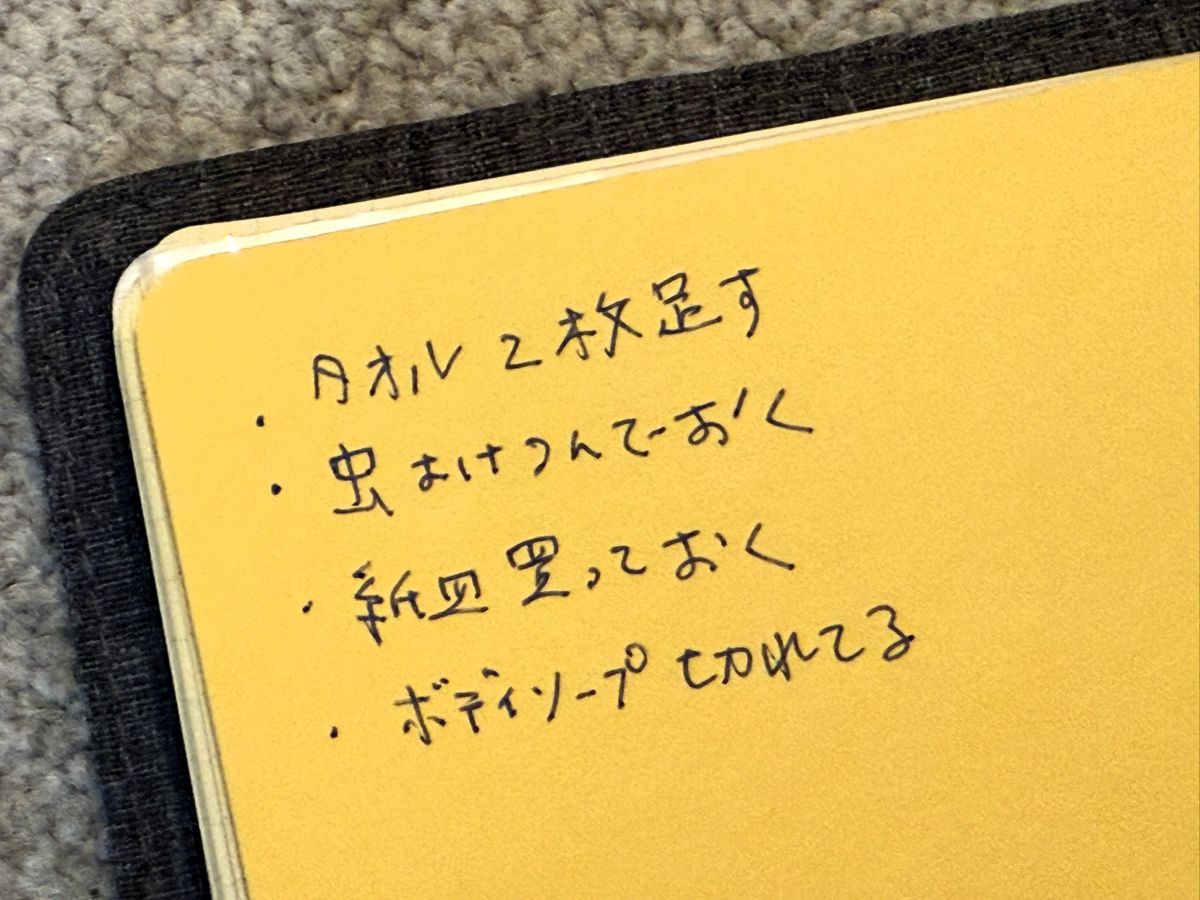 ・タオル2枚足す
・虫よけつんでおく
・紙皿買っておく
・ボディソープ切れてる